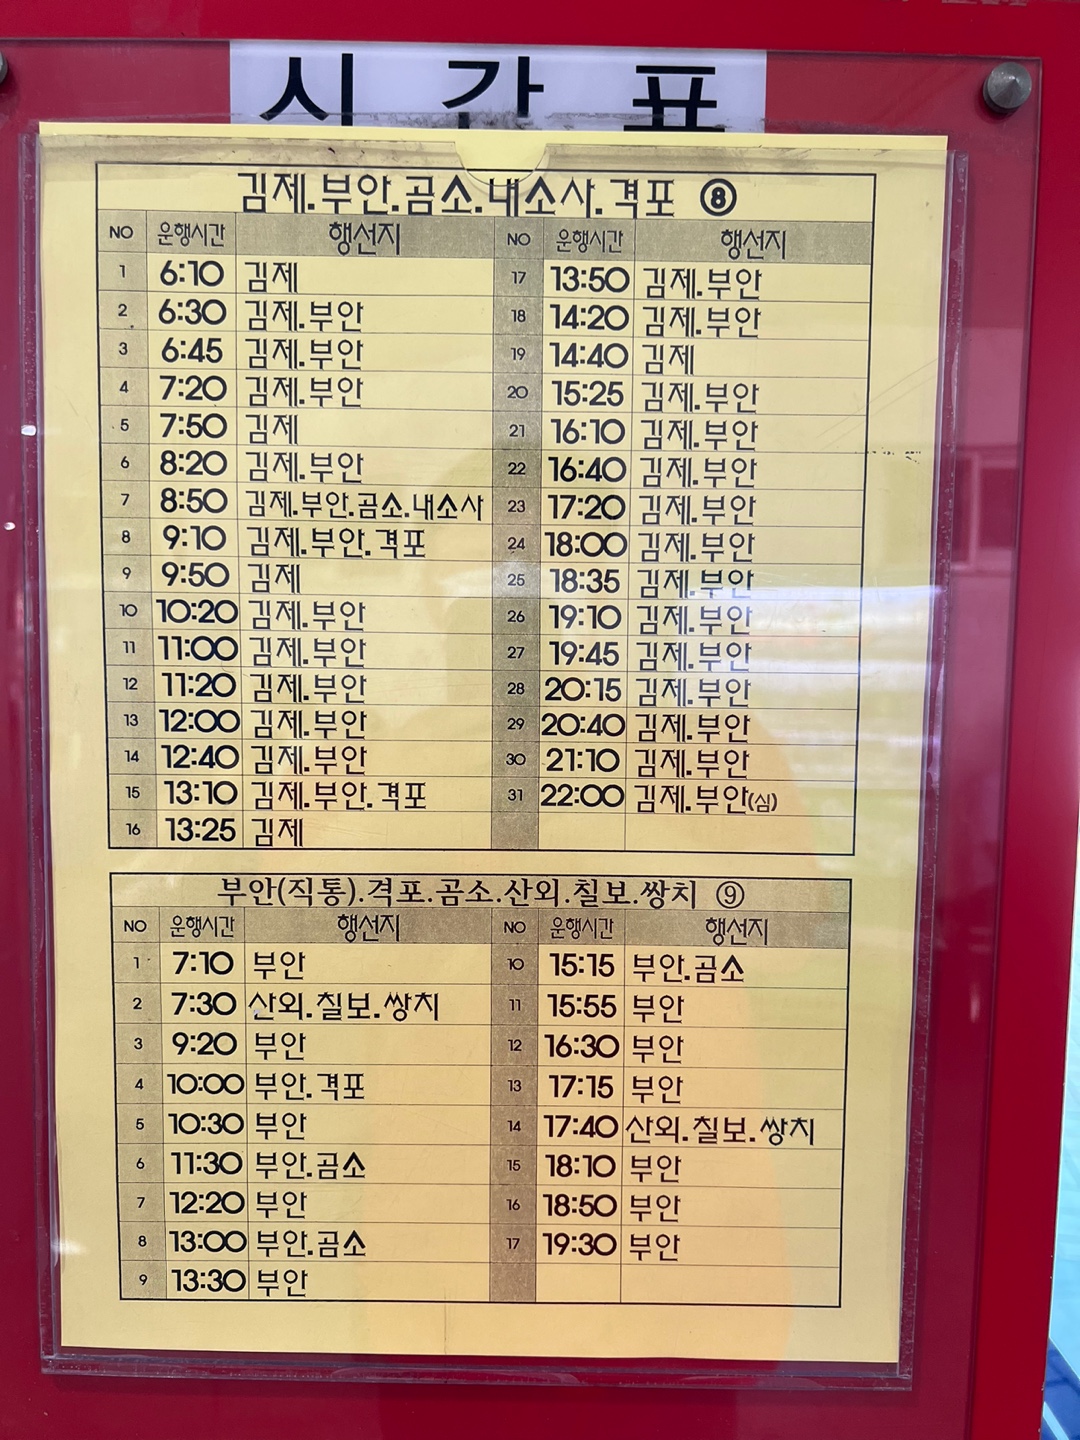 시 간 표
김제.부안.곰소.내소사.격포 ⑧
NO 운행시간 행선지 NO 운행시간 행선지
1 6:10 김제 17 13:50 김제.부안
2 6:30 김제.부안 18 14:20 김제.부안
3 6:45 김제.부안 19 14:40 김제
4 7:20 김제.부안 20 15:25 김제.부안
5 7:50 김제 21 16:10 김제.부안
6 8:20 김제.부안 22 16:40 김제.부안
7 8:50 김제.부안.곰소.내소사 23 17:20 김제.부안
8 9:10 김제.부안.격포 24 18:00 김제.부안
9 9:50 김제 25 18:35 김제.부안
10 10:20 김제.부안 26 19:10 김제.부안
11 11:00 김제.부안 27 19:45 김제.부안
12 11:20 김제.부안 28 20:15 김제.부안
13 12:00 김제.부안 29 20:40 김제.부안
14 12:40 김제.부안 30 21:10 김제.부안
15 13:10 김제.부안.격포 31 22:00 김제.부안(심)
16 13:25 김제
부안(직통).격포.곰소.산외.칠보.쌍치 ⑨
NO 운행시간 행선지 NO 운행시간 행선지
1 7:10 부안 10 15:15 부안.곰소
2 7:30 산외.칠보.쌍치 11 15:55 부안
3 9:20 부안 12 16:30 부안
4 10:00 부안.격포 13 17:15 부안
5 10:30 부안 14 17:40 산외.칠보.쌍치
6 11:30 부안.곰소 15 18:10 부안
7 12:20 부안 16 18:50 부안
8 13:00 부안.곰소 17 19:30 부안
9 13:30 부안